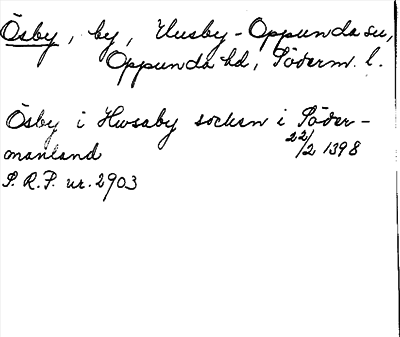 Ösby, by, Husby-Oppunda sn,
Oppunda hd, Söderm. l.
Ösby i Hwsaby socken i Söder-
manland 22/2 1398
S. R. P. nr. 2903